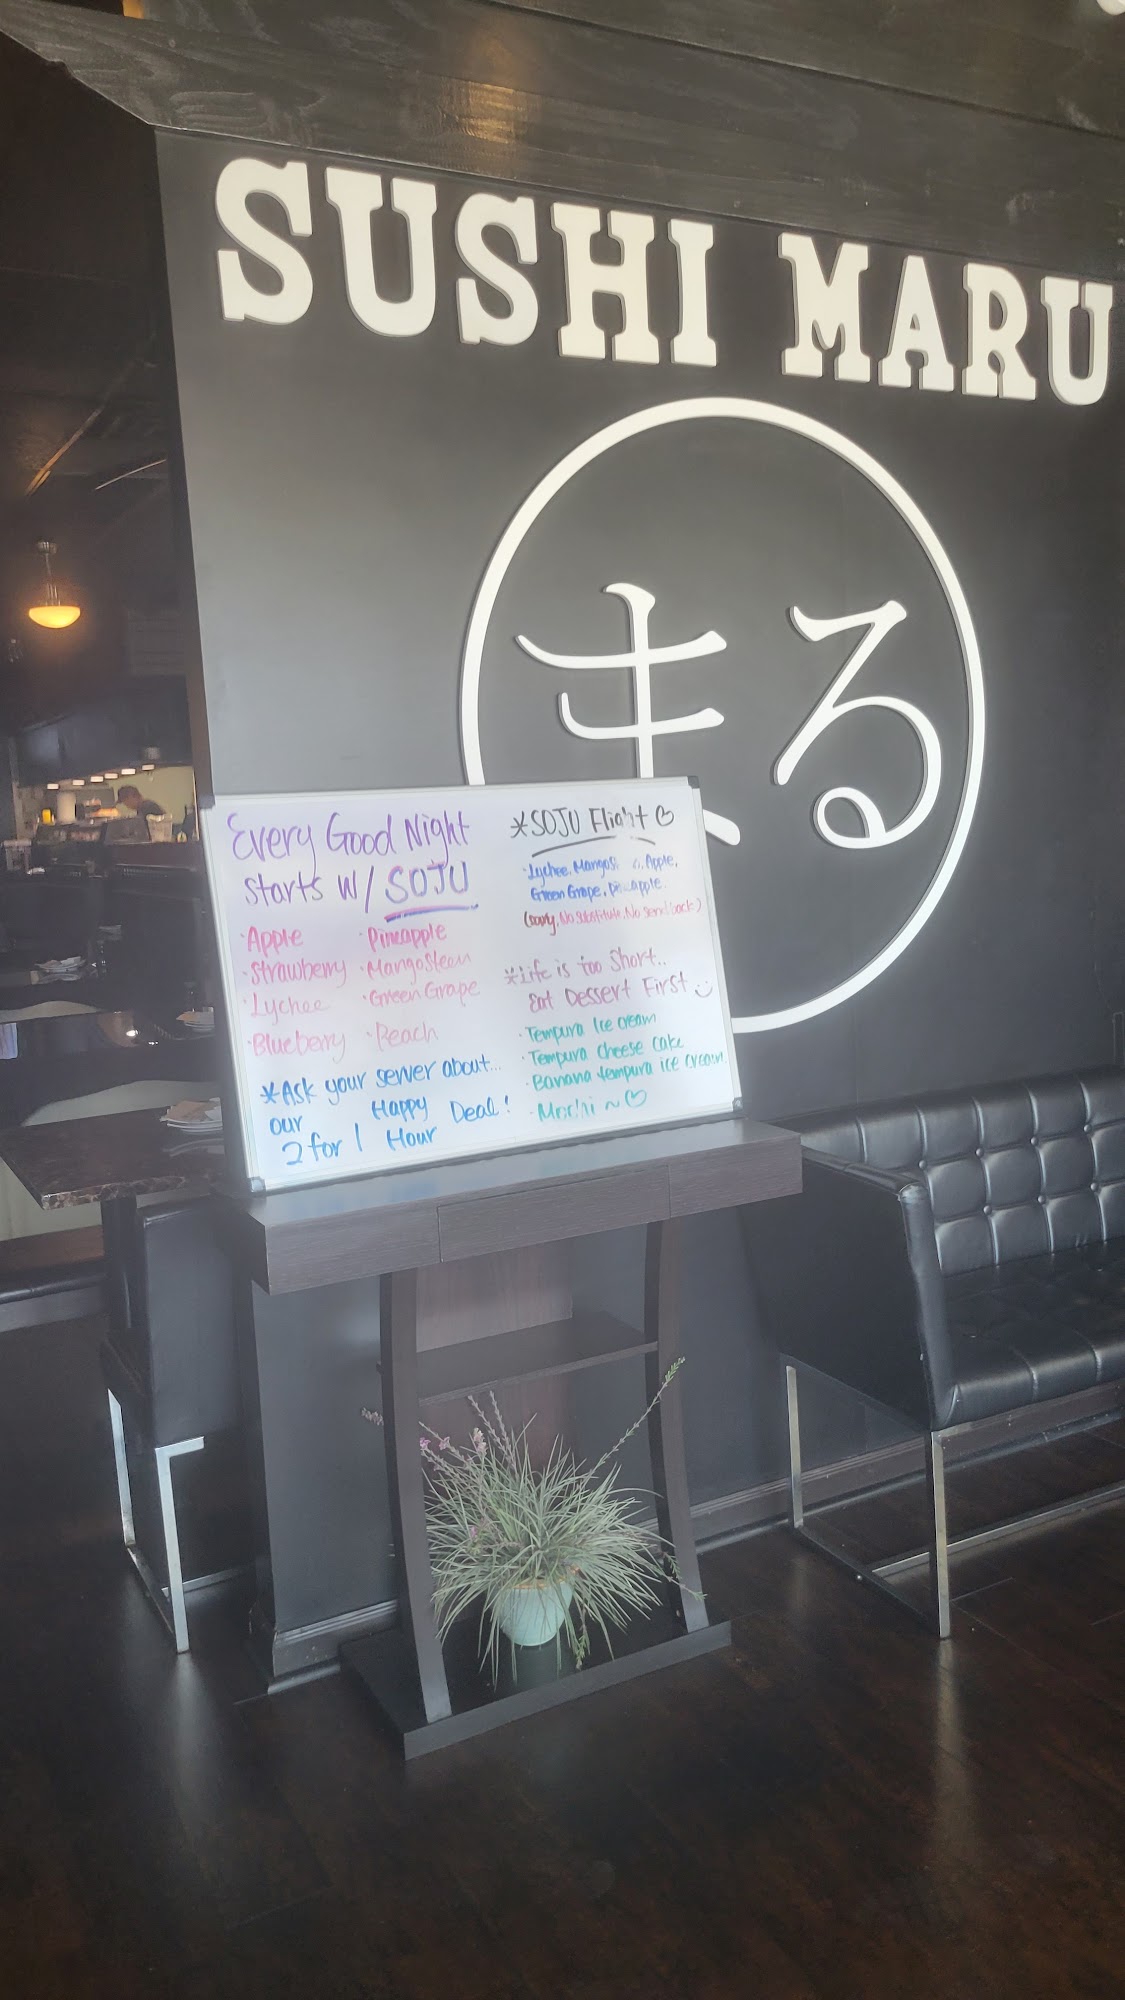 SUSHI MARU
まる
Every Good Night
Starts w/ SOJU
· Apple · Pineapple
· Strawberry · Mangosteen
· Lychee · Green Grape
· Blueberry · Peach
*Ask your server about...
our Happy Deal!
2 for 1 Hour
*SOJU Flight ♡
· Lychee, Apple,
Green Grape, Pineapple.
No Substitute, No Send back)
*Life is too Short..
Eat Dessert First ☺
· Tempura Ice cream
· Tempura cheese cake
· Banana tempura ice cream
· Mochi ~ ♡